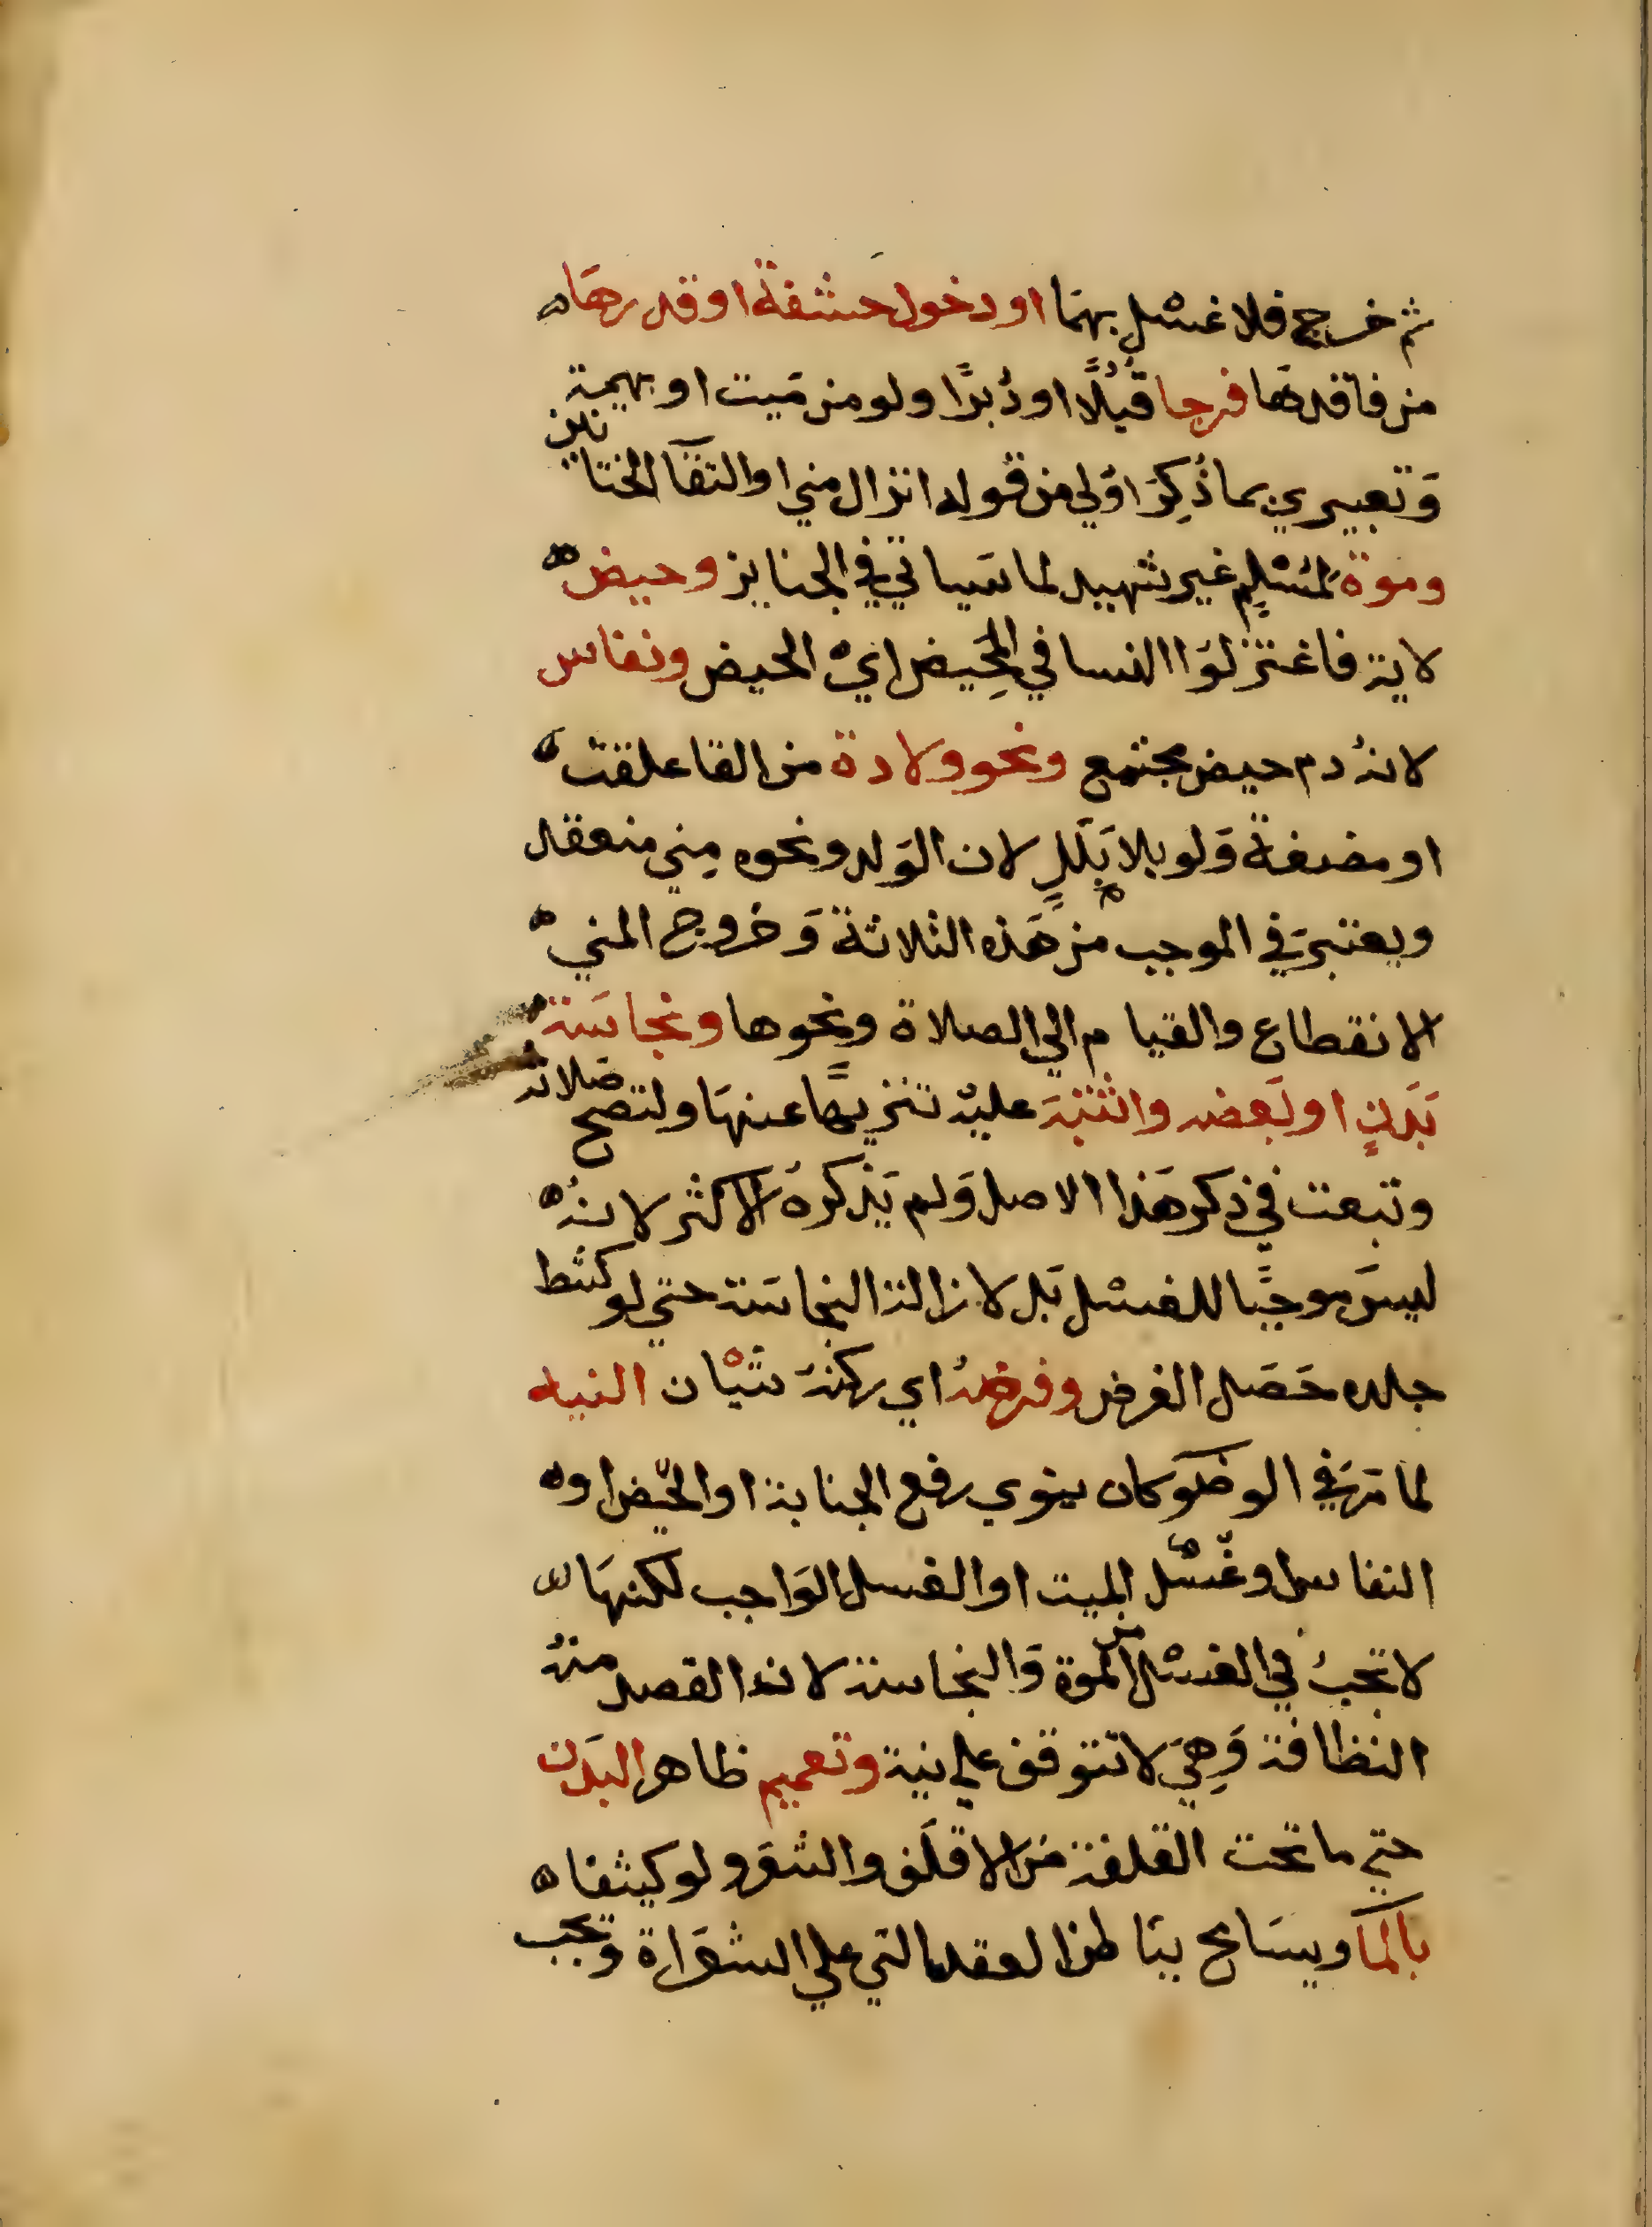 ثم خرج فلا غسْل بهما او دخول حشفة او قدرها
من فاقدها فرجا قُبُلًا او دُبرًا ولو من مَيت او بهيمة
وَتعبيري بما ذُكِرَ اوْلي من قوله انزال مني او التقآ الختانين
وموة لمسْلِمٍ غير شهيد لما سَياتي في الجنايز وحيض
لاية فاعتزلوَا النسا في المَحِيض ايْ الحيض ونفاس
لانهُ دم حيض مجتمع ونحو ولادة من القا علقة
او مضغة وَلو بلا بَلَلٍ لان الوَلد ونحوه مِني منعقد
ويعتبر في الموجب من هَذه الثلاثة وَخروج المني
الانقطاع والقيام الي الصلاة ونحوها ونجاسَة
بَدَنٍ او بَعضه واشتبهَ عليْه تنزيهًا عنهَا ولتصح صَلاتهُ
وتبعت في ذكر هَذا الاصل وَلم يَذكرهُ الاكثر لانهُ
ليسَ موجبًا للغسْل بَل لازالة النجاسَة حتي لو كشط
جلده حَصَل الغرض وفرضهُ اي ركنهَ شيْان النيه
لما مَرَ في الوضوَ كان ينوي رفع الجنابة او الحيْض او
النفاس او غسْل الميت او الغسل الوَاجب لكنهَا
لا تجبُ في الغسْل من الموة وَالنجاسة لانه القصد منهُ
النظافة وَهِيَ لا تتوقف علي نية وتعميم ظاهر البَدن
حتي ما تحت القلفة مَن الاقلَف والشعَر ولو كيثفا
بالمآ ويسَامح ببَاطن العقد التي علي الشعَراة وَيجب